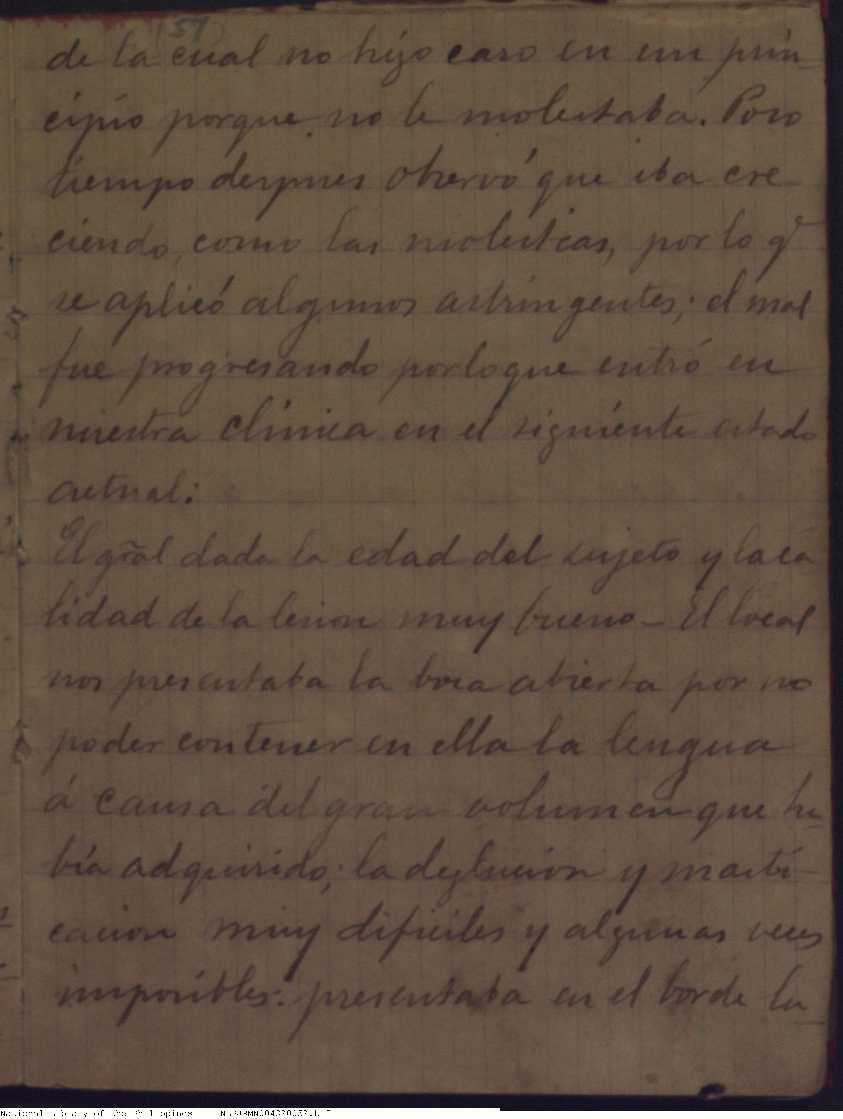 57
de la cual no hizo caso en un prin-
cipio porque no le molestaba. Poco
tiempo despues observó que iba cre-
ciendo, como las molestias, por lo q.
se aplicó algunos astringentes; el mal
fue progresando por lo que entró en
nuestra clínica en el siguiente estado
actual:
El gral dada la edad del sujeto y la ca
lidad de la lesion muy bueno - El local
nos presentaba la boca abierta por no
poder contener en ella la lengua
á causa del gran volumen que ha-
bía adquirido; la deglucion y masti-
cacion muy dificiles y algunas veces
imposibles: presentaba en el borde la-
National Library of the Philippines